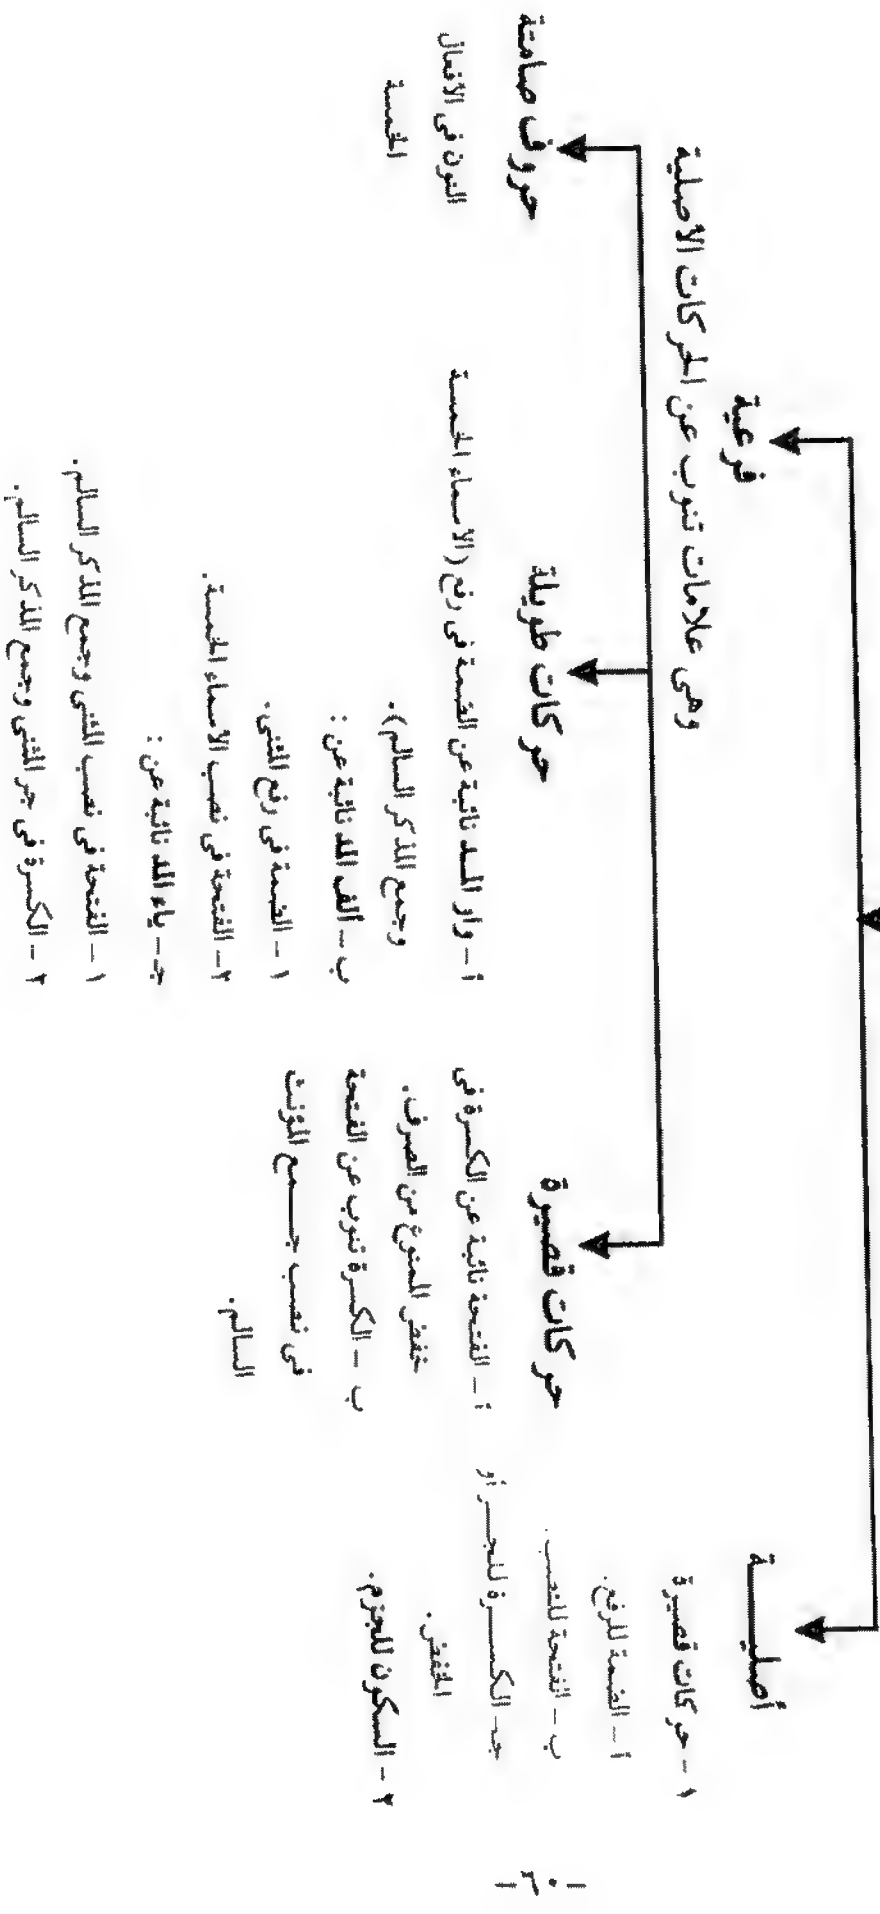 أصليـــة
١ – حركات قصيرة
أ – الضمة للرفع.
ب – الفتحة للنصب.
جـ – الكســرة للجــر أو
الخفض.
٢ – السكون للجزم.
فرعية
وهى علامات تنوب عن الحركات الأصلية
حركات قصيرة
أ – الفتحة نائبة عن الكسرة فى
خفض الممنوع من الصرف.
ب – الكسرة تنوب عن الفتحة
فى نصب جـــمع المؤنث
السالم.
حركات طويلة
أ – واو المــد نائبة عن الضمة فى رفع (الأسماء الخمسة
وجمع المذكر السالم).
ب – ألف المد نائبة عن :
١ – الضمة فى رفع المثنى.
٢ – الفتحة فى نصب الأسماء الخمسة.
جـ – ياء المد نائبة عن :
١ – الفتحة فى نصب المثنى وجمع المذكر السالم.
٢ – الكسرة فى جر المثنى وجمع المذكر السالم.
حروف صامتة
النون فى الأفعال
الخمسة
–٦٠–